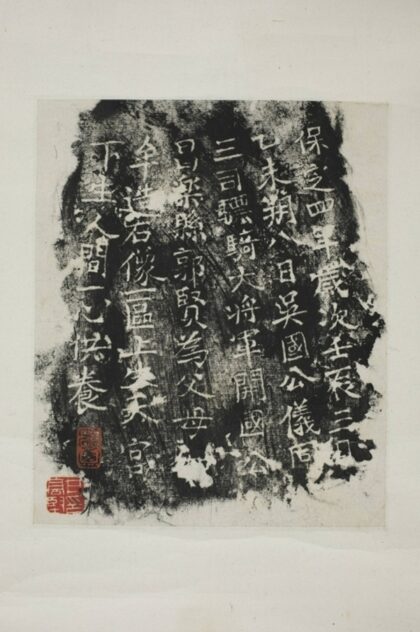 保定四年歲次壬辰三月
乙未朔八日吳國公儀同
三司驃騎大將軍開國公
昌樂縣郭賢為父母
造石像一區上生天宮
下生人間一心供養